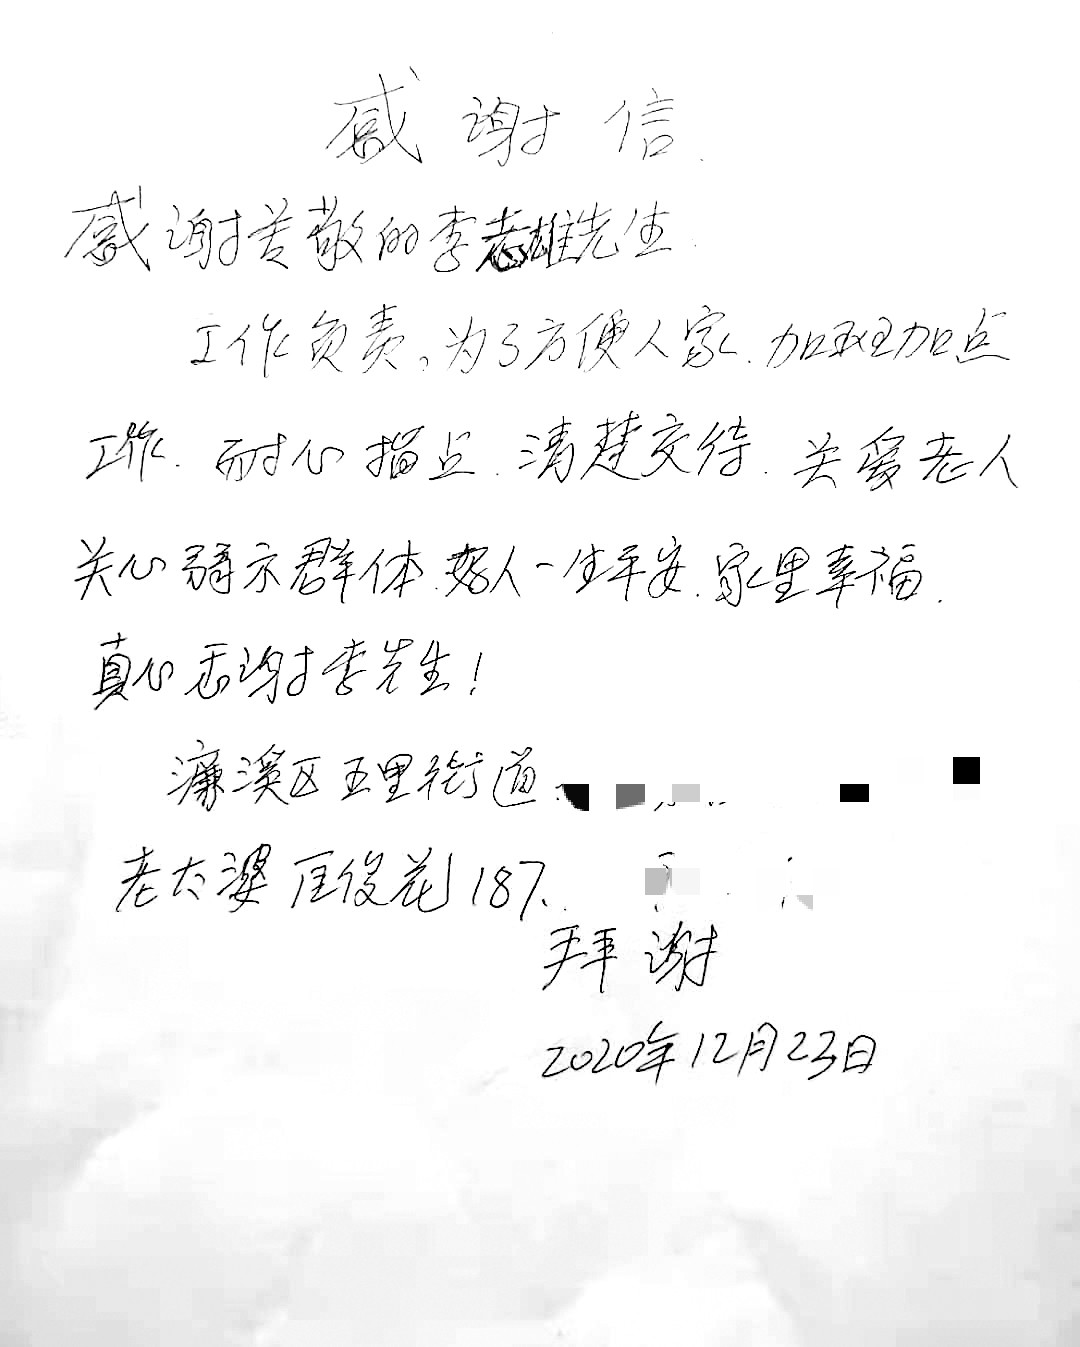 感谢信.
感谢尊敬的李志雄先生.
工作负责,为了方便人家.加班加点
工作.耐心指点.清楚交待.关爱老人
关心弱示群体.好人一生平安.家里幸福.
真心感谢李先生!
濂溪区五里街道
老太婆 匡俊花 187
拜谢
2020年12月23日